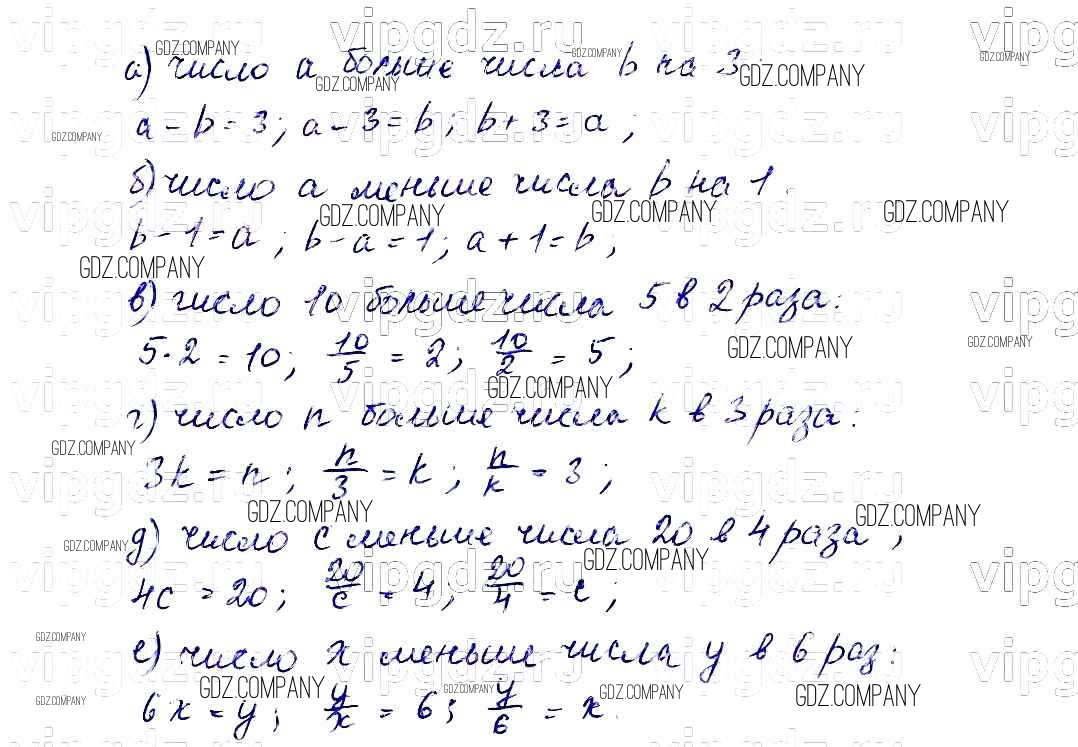 а) число a больше числа b на 3:
a - b = 3; a - 3 = b; b + 3 = a;
б) число a меньше числа b на 1.
b - 1 = a; b - a = 1; a + 1 = b;
в) число 10 больше числа 5 в 2 раза:
5 · 2 = 10; 10/5 = 2; 10/2 = 5;
г) число n больше числа k в 3 раза:
3k = n; n/3 = k; n/k = 3;
д) число c меньше числа 20 в 4 раза;
4c = 20; 20/c = 4; 20/4 = c;
е) число x меньше числа y в 6 раз:
6x = y; y/x = 6; y/6 = x.
vipgdz.ru
GDZ.COMPANY